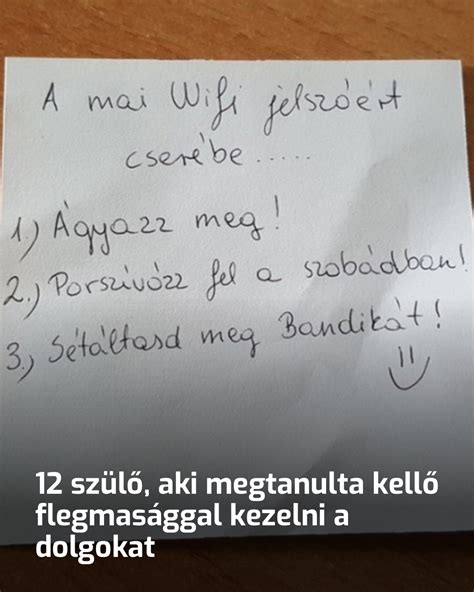 A mai Wifi jelszóért
cserébe.....
1.) Ágyazz meg!
2.) Porszívózz fel a szobádban!
3.) Sétáltasd meg Bandikát!
12 szülő, aki megtanulta kellő
flegmasággal kezelni a
dolgokat